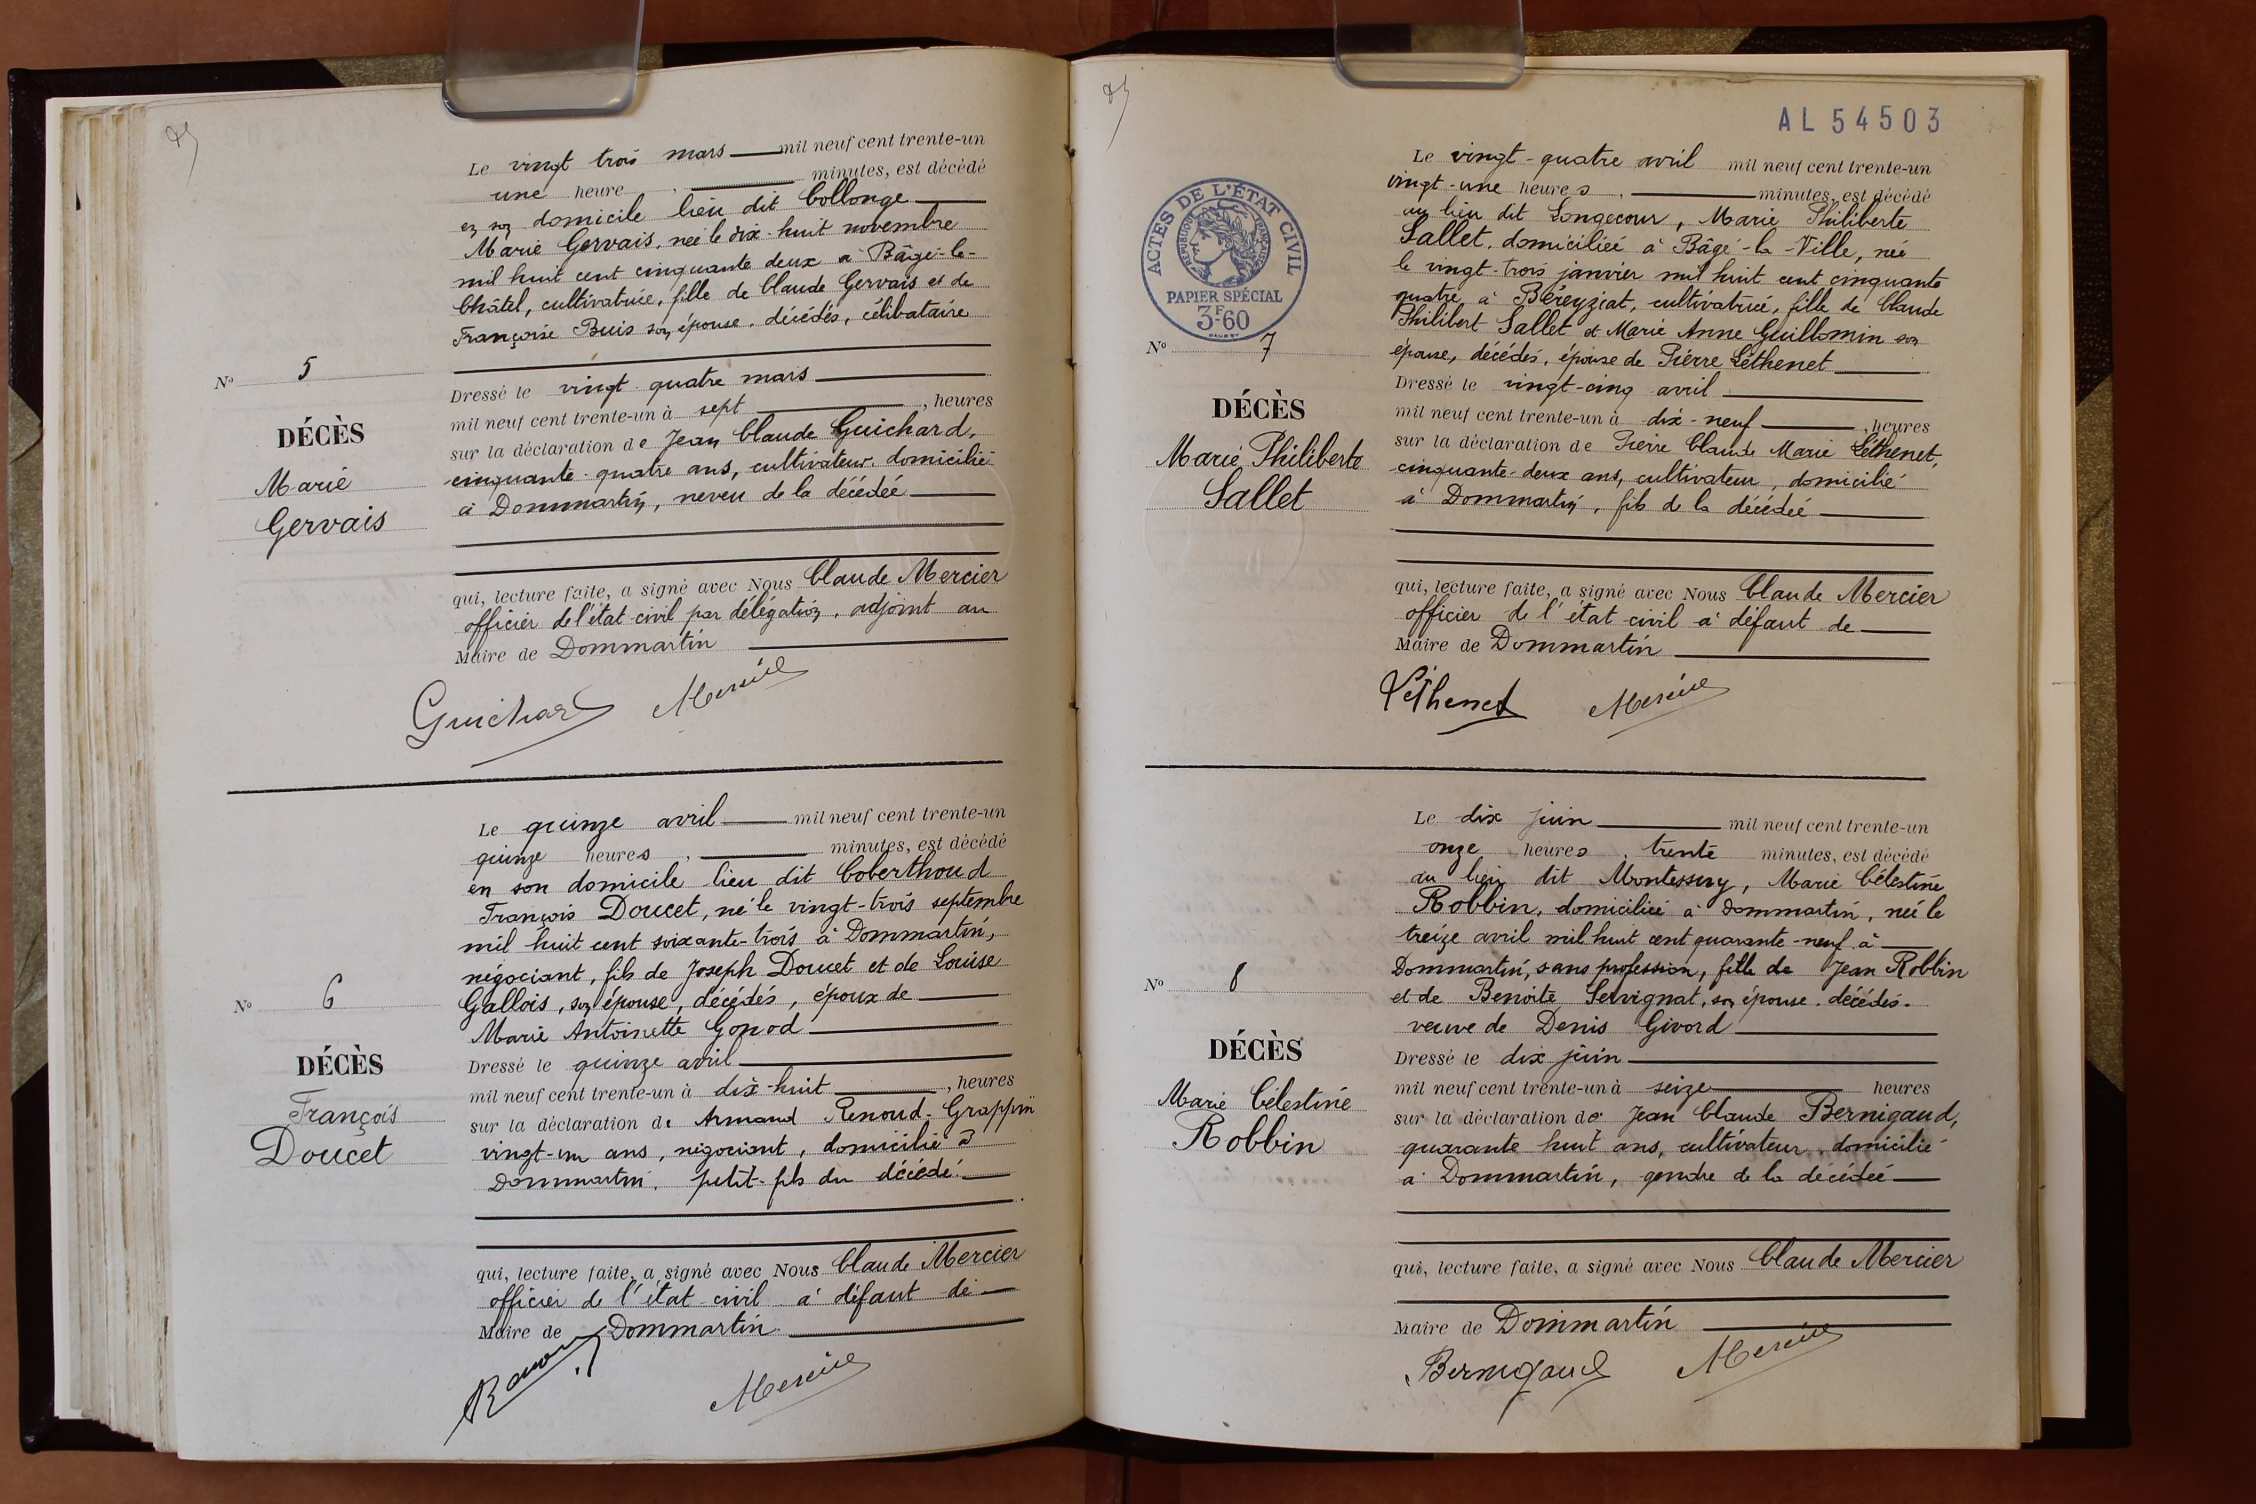 Le vingt trois mars mil neuf cent trente-un
une heure , minutes, est décédé
en son domicile lieu dit Collonge
Marie Gervais, née le dix-huit novembre
mil huit cent cinquante deux à Bâgé-le-
Châtel, cultivatrice, fille de Claude Gervais et de
Françoise Buis son épouse, décédés, célibataire
N° 5
DÉCÈS
Marie
Gervais
Dressé le vingt quatre mars
mil neuf cent trente-un à sept , heures
sur la déclaration de Jean Claude Guichard,
cinquante-quatre ans, cultivateur, domicilié
à Dommartin, neveu de la décédée
qui, lecture faite, a signé avec Nous Claude Mercier
officier de l'état-civil par délégation, adjoint au
Maire de Dommartin
Guichard Mercier
Le quinze avril mil neuf cent trente-un
quinze heures , minutes, est décédé
en son domicile lieu dit Coberthoud
François Doucet, né le vingt-trois septembre
mil huit cent soixante-trois à Dommartin,
négociant, fils de Joseph Doucet et de Louise
Gallois, son épouse, décédés, époux de
Marie Antoinette Gonod
N° 6
DÉCÈS
François
Doucet
Dressé le quinze avril
mil neuf cent trente-un à dix-huit , heures
sur la déclaration de Armand Renoud-Grappin
vingt-un ans, négociant, domicilié à
Dommartin, petit-fils du décédé
qui, lecture faite, a signé avec Nous Claude Mercier
officier de l'état-civil à défaut de
Maire de Dommartin
Mercier
AL 54503
ACTES DE L'ÉTAT CIVIL
RÉPUBLIQUE FRANÇAISE
PAPIER SPÉCIAL
3F60
Le vingt-quatre avril mil neuf cent trente-un
vingt-une heures , minutes, est décédé
au lieu dit Longecour, Marie Philiberte
Sallet, domiciliée à Bâgé-la-Ville, née
le vingt-trois janvier mil huit cent cinquante
quatre à Béreyziat, cultivatrice, fille de Claude
Philibert Sallet et Marie Anne Guillomin son
épouse, décédés, épouse de Pierre Léthenet
N° 7
DÉCÈS
Marie Philiberte
Sallet
Dressé le vingt-cinq avril
mil neuf cent trente-un à dix-neuf , heures
sur la déclaration de Pierre Claude Marie Léthenet,
cinquante-deux ans, cultivateur, domicilié
à Dommartin, fils de la décédée
qui, lecture faite, a signé avec Nous Claude Mercier
officier de l'état-civil à défaut de
Maire de Dommartin
Léthenet Mercier
Le dix juin mil neuf cent trente-un
onze heures , trente minutes, est décédé
au lieu dit Montessuy, Marie Célestine
Robbin, domiciliée à Dommartin, née le
treize avril mil huit cent quarante-neuf à
Dommartin, sans profession, fille de Jean Robbin
et de Benoite Servignat, son épouse, décédés.
veuve de Denis Givord
N° 8
DÉCÈS
Marie Célestine
Robbin
Dressé le dix juin
mil neuf cent trente-un à seize heures
sur la déclaration de Jean Claude Bernigaud,
quarante huit ans, cultivateur, domicilié
à Dommartin, gendre de la décédée
qui, lecture faite, a signé avec Nous Claude Mercier
Maire de Dommartin
Bernigaud Mercier